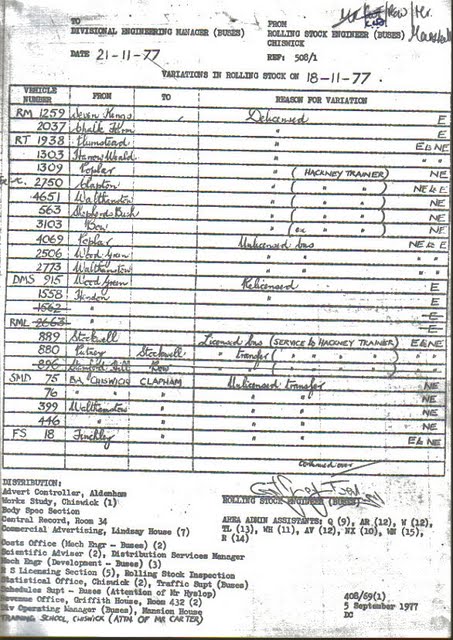 TO
DIVISIONAL ENGINEERING MANAGER (BUSES)
FROM
ROLLING STOCK ENGINEER (BUSES)
CHISWICK
DATE 21-11-77
REF: 508/1
VARIATIONS IN ROLLING STOCK ON 18-11-77.
VEHICLE NUMBER FROM TO REASON FOR VARIATION
RM 1259 Seven Kings Delicensed E
2037 Chalk Farm " E
RT 1938 Plumstead " E & NE
1303 Harrow Weald " " "
1309 Poplar " (HACKNEY TRAINER) NE
2750 Clapton " ( " " ) NE & E
4651 Walthamstow " ( " " ) NE
563 Shepherds Bush " ( " " ) NE
3103 Bow " (ex " " ) NE
4069 Poplar Unlicensed bus NE & E
2506 Wood Green " " " "
2773 Walthamstow " " " "
DMS 915 Wood Green Relicensed E
1558 Hendon " E
1562 " " E
RML 2663 " " E
889 Stockwell Licensed bus (SERVICE to HACKNEY TRAINER) E & NE
880 Putney Stockwell " transfer ( " " " " ) " "
896 Stamford Hill Bow " " " "
SMD 75 BA CHISWICK CLAPHAM Unlicensed transfer NE
76 " " " " " NE
399 Walthamstow " " " NE
446 " " " " NE
FS 18 Finchley " " E & NE
continued over
ROLLING STOCK ENGINEER (BUSES)
DISTRIBUTION:
Advert Controller, Aldenham
Works Study, Chiswick (1)
Body Spec Section
Central Record, Room 34
Commercial Advertising, Lindsay House (7)
Costs Office (Mech Engr - Buses) (2)
Scientific Adviser (2), Distribution Services Manager
Mech Engr (Development - Buses) (3)
R S Licensing Section (5), Rolling Stock Inspection
Statistical Office, Chiswick (2), Traffic Supt (Buses)
Schedules Supt - Buses (Attention of Mr Hyslop)
Revenue Office, Griffith House, Room 432 (2)
Div Operating Manager (Buses), Mansion House
TRAINING SCHOOL, CHISWICK (ATTN. OF MR CARTER)
AREA ADMIN ASSISTANTS: Q (9), AR (12), W (12),
TL (13), WH (11), AV (12), NX (10), WN (15),
R (14)
408/69(1)
5 September 1977
DC